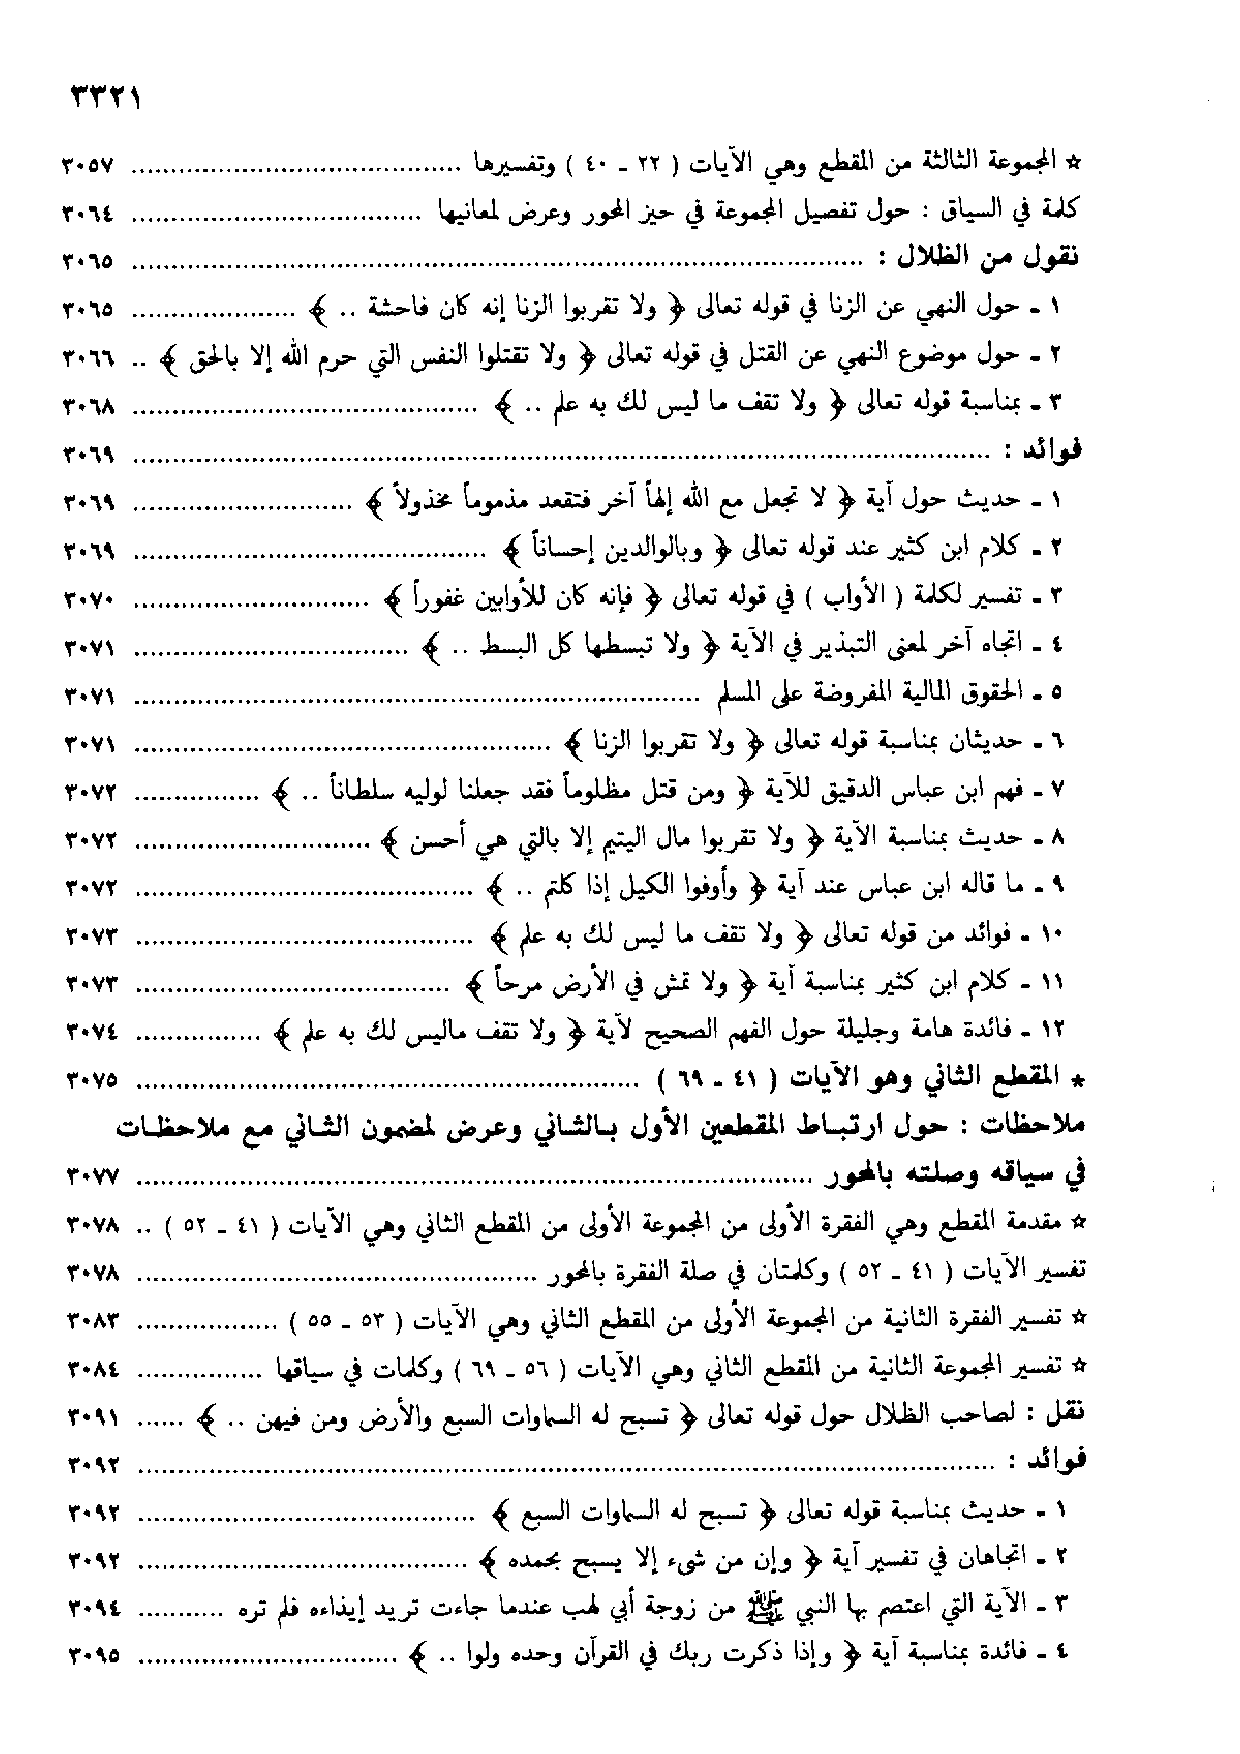 ٣٣٢١
☆ المجموعة الثالثة من المقطع وهي الآيات ( ٢٢ ـ ٤٠ ) وتفسيرها ......................................... ٣٠٥٧
كلمة في السياق : حول تفصيل المجموعة في حيز المحور وعرض لمعانيها .................................... ٣٠٦٤
نقول من الظلال : ............................................................................................ ٣٠٦٥
١ ـ حول النهي عن الزنا في قوله تعالى ﴿ ولا تقربوا الزنا إنه كان فاحشة .. ﴾ ..................... ٣٠٦٥
٢ ـ حول موضوع النهي عن القتل في قوله تعالى ﴿ ولا تقتلوا النفس التي حرم الله إلا بالحق ﴾ .. ٣٠٦٦
٣ ـ بمناسبة قوله تعالى ﴿ ولا تقف ما ليس لك به علم .. ﴾ ............................................ ٣٠٦٨
فوائد : ............................................................................................................ ٣٠٦٩
١ ـ حديث حول آية ﴿ لا تجعل مع الله إلهاً آخر فتقعد مذموماً مخذولاً ﴾ ............................ ٣٠٦٩
٢ ـ كلام ابن كثير عند قوله تعالى ﴿ وبالوالدين إحساناً ﴾ ............................................. ٣٠٦٩
٣ ـ تفسير لكلمة ( الأواب ) في قوله تعالى ﴿ فإنه كان للأوابين غفوراً ﴾ .............................. ٣٠٧٠
٤ ـ اتجاه آخر لمعنى التبذير في الآية ﴿ ولا تبسطها كل البسط .. ﴾ ................................... ٣٠٧١
٥ ـ الحقوق المالية المفروضة على المسلم ....................................................................... ٣٠٧١
٦ ـ حديثان بمناسبة قوله تعالى ﴿ ولا تقربوا الزنا ﴾ ..................................................... ٣٠٧١
٧ ـ فهم ابن عباس الدقيق للآية ﴿ ومن قتل مظلوماً فقد جعلنا لوليه سلطاناً .. ﴾ ................ ٣٠٧٢
٨ ـ حديث بمناسبة الآية ﴿ ولا تقربوا مال اليتيم إلا بالتي هي أحسن ﴾ .............................. ٣٠٧٢
٩ ـ ما قاله ابن عباس عند آية ﴿ وأوفوا الكيل إذا كلتم .. ﴾ ........................................... ٣٠٧٢
١٠ ـ فوائد من قوله تعالى ﴿ ولا تقف ما ليس لك به علم ﴾ ........................................... ٣٠٧٣
١١ ـ كلام ابن كثير بمناسبة آية ﴿ ولا تمش في الأرض مرحاً ﴾ ........................................ ٣٠٧٣
١٢ ـ فائدة هامة وجليلة حول الفهم الصحيح لآية ﴿ ولا تقف ماليس لك به علم ﴾ ................ ٣٠٧٤
★ المقطع الثاني وهو الآيات ( ٤١ ـ ٦٩ ) ............................................................... ٣٠٧٥
ملاحظات : حول ارتباط المقطعين الأول بالثاني وعرض لمضمون الثاني مع ملاحظات
في سياقه وصلته بالمحور ..................................................................................... ٣٠٧٧
☆ مقدمة المقطع وهي الفقرة الأولى من المجموعة الأولى من المقطع الثاني وهي الآيات ( ٤١ ـ ٥٢ ) .. ٣٠٧٨
تفسير الآيات ( ٤١ ـ ٥٢ ) وكلمتان في صلة الفقرة بالمحور .................................................. ٣٠٧٨
☆ تفسير الفقرة الثانية من المجموعة الأولى من المقطع الثاني وهي الآيات ( ٥٣ ـ ٥٥ ) .................. ٣٠٨٣
☆ تفسير المجموعة الثانية من المقطع الثاني وهي الآيات ( ٥٦ ـ ٦٩ ) وكلمات في سياقها ................ ٣٠٨٤
نقل : لصاحب الظلال حول قوله تعالى ﴿ تسبح له السماوات السبع والأرض ومن فيهن .. ﴾ ...... ٣٠٩١
فوائد : ............................................................................................................ ٣٠٩٢
١ ـ حديث بمناسبة قوله تعالى ﴿ تسبح له السماوات السبع ﴾ ........................................... ٣٠٩٢
٢ ـ اتجاهان في تفسير آية ﴿ وإن من شيء إلا يسبح بحمده ﴾ .......................................... ٣٠٩٢
٣ ـ الآية التي اعتصم بها النبي ﷺ من زوجة أبي لهب عندما جاءت تريد إيذاءه فلم تره ........... ٣٠٩٤
٤ ـ فائدة بمناسبة آية ﴿ وإذا ذكرت ربك في القرآن وحده ولوا .. ﴾ ................................. ٣٠٩٥